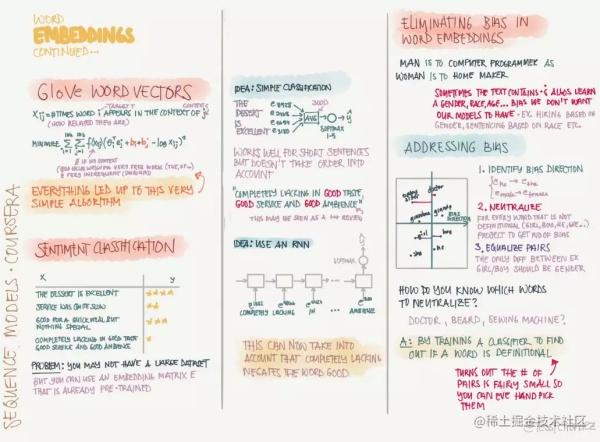 WORD
EMBEDDINGS
CONTINUED...
GloVe WORD VECTORS
Xij = #TIMES WORD i APPEARS IN THE CONTEXT OF j
(HOW RELATED THEY ARE)
TARGET
CONTEXT
MINIMIZE
IF NO CONTEXT
EVERYTHING LED UP TO THIS VERY
SIMPLE ALGORITHM
SENTIMENT CLASSIFICATION
X y
THE DESSERT IS EXCELLENT ★★★★
SERVICE WAS QUITE SLOW ★★
GOOD FOR A QUICK MEAL BUT ★★★
NOTHING SPECIAL
COMPLETELY LACKING IN GOOD TASTE ★
GOOD SERVICE AND GOOD AMBIENCE
PROBLEM: YOU MAY NOT HAVE A LARGE DATASET
BUT YOU CAN USE AN EMBEDDING MATRIX E
THAT IS ALREADY PRE-TRAINED
SEQUENCE MODELS · COURSERA
IDEA: SIMPLE CLASSIFICATION
THE
DESERT
IS
EXCELLENT
300D
AVG
SOFTMAX
1-5
WORKS WELL FOR SHORT SENTENCES
BUT DOESN'T TAKE ORDER INTO
ACCOUNT
"COMPLETELY LACKING IN GOOD TASTE,
GOOD SERVICE AND GOOD AMBIENCE"
THIS MAY BE SEEN AS A ++ REVIEW
IDEA: USE AN RNN
SOFTMAX
COMPLETELY LACKING IN ... AMBIENCE
THIS CAN NOW TAKE INTO
ACCOUNT THAT COMPLETELY LACKING
NEGATES THE WORD GOOD
ELIMINATING BIAS IN
WORD EMBEDDINGS
MAN IS TO COMPUTER PROGRAMMER AS
WOMAN IS TO HOME MAKER
SOMETIMES THE TEXT CONTAINS & ALGOS LEARN
A GENDER, RACE, AGE... BIAS WE DON'T WANT
OUR MODELS TO HAVE · EX. HIRING BASED ON
GENDER, SENTENCING BASED ON RACE ETC.
ADDRESSING BIAS
doctor
girl
boy
she
he
BIAS
DIRECTION
1. IDENTIFY BIAS DIRECTION
e he - e she
e male - e female
2. NEUTRALIZE
FOR EVERY WORD THAT IS NOT
DEFINITIONAL (GIRL, BOY, HE, SHE...)
PROJECT TO GET RID OF BIAS
3. EQUALIZE PAIRS
THE ONLY DIFF BETWEEN EX
GIRL/BOY SHOULD BE GENDER
HOW DO YOU KNOW WHICH WORDS
TO NEUTRALIZE?
DOCTOR, BEARD, SEWING MACHINE?
A: BY TRAINING A CLASSIFIER TO FIND
OUT IF A WORD IS DEFINITIONAL
TURNS OUT THE # OF
PAIRS IS FAIRLY SMALL SO
YOU CAN EVE HAND PICK
THEM
@稀土掘金技术社区